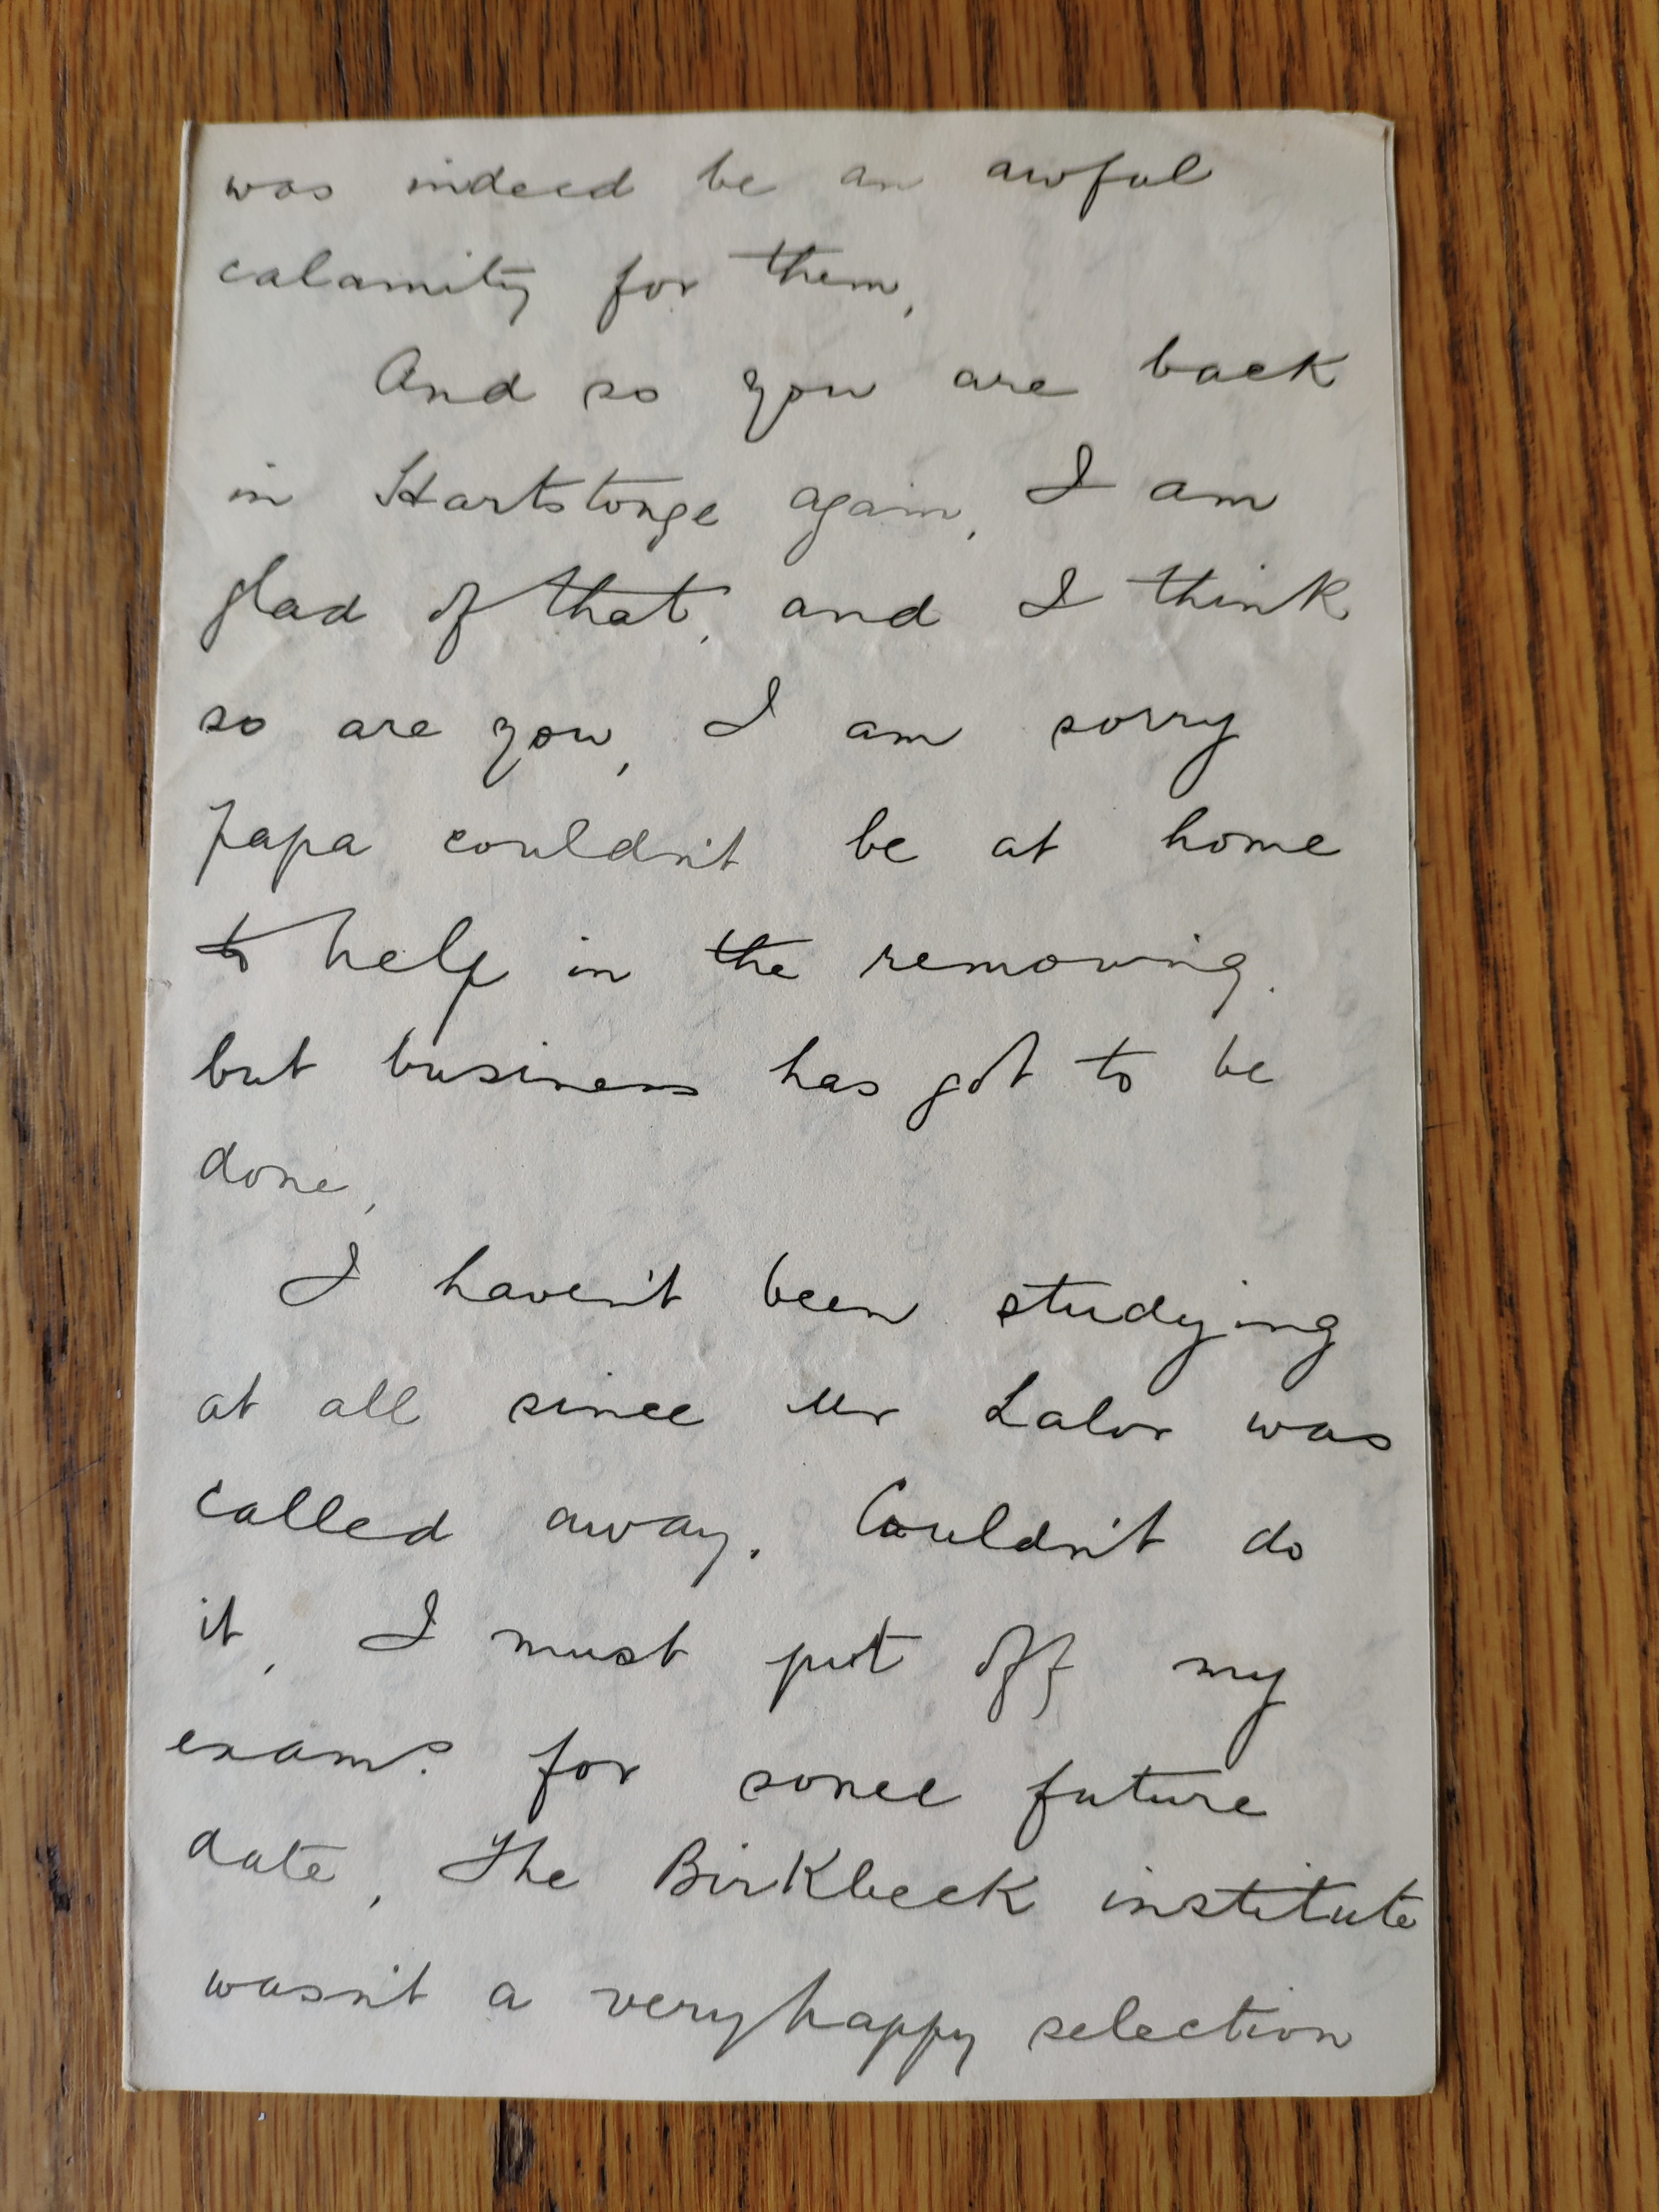 was indeed be an awful
calamity for them,
And so you are back
in Hartstonge again, I am
glad of that, and I think
so are you, I am sorry
Papa couldn't be at home
to help in the removing.
but business has got to be
done,
I haven't been studying
at all since Mr Lalor was
called away. Couldn't do
it, I must put off my
exams. for some future
date, The Birkbeck institute
wasn't a very happy selection